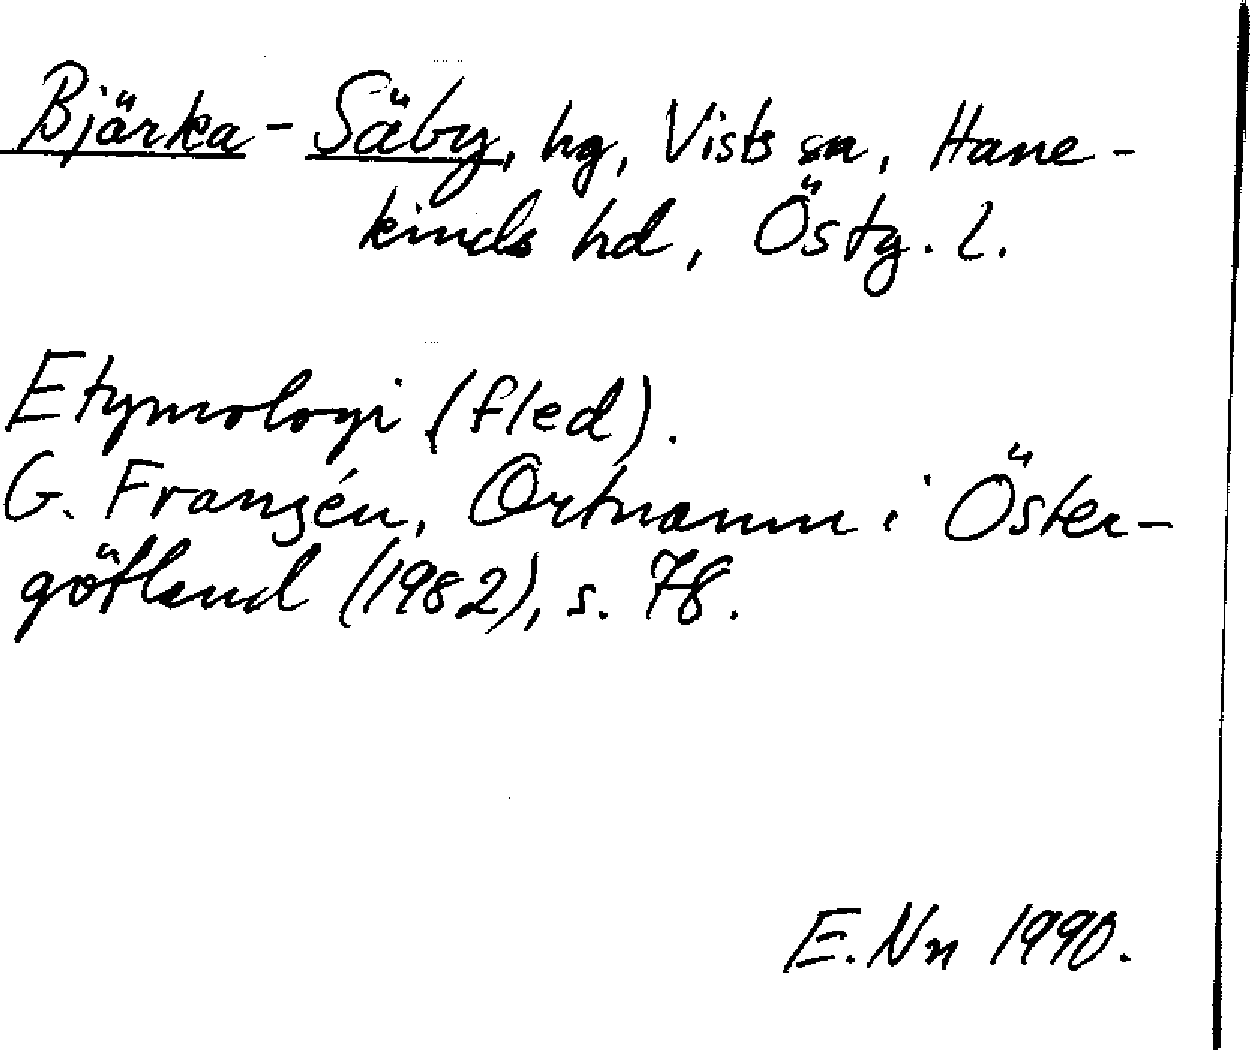 Bjärka-Säby, hg, Vists sn, Hane-
kinds hd, Östg. l.
Etymologi (fled).
G. Franzén, Ortnamn i Öster-
götland (1982), s. 78.
E. Nn 1990.